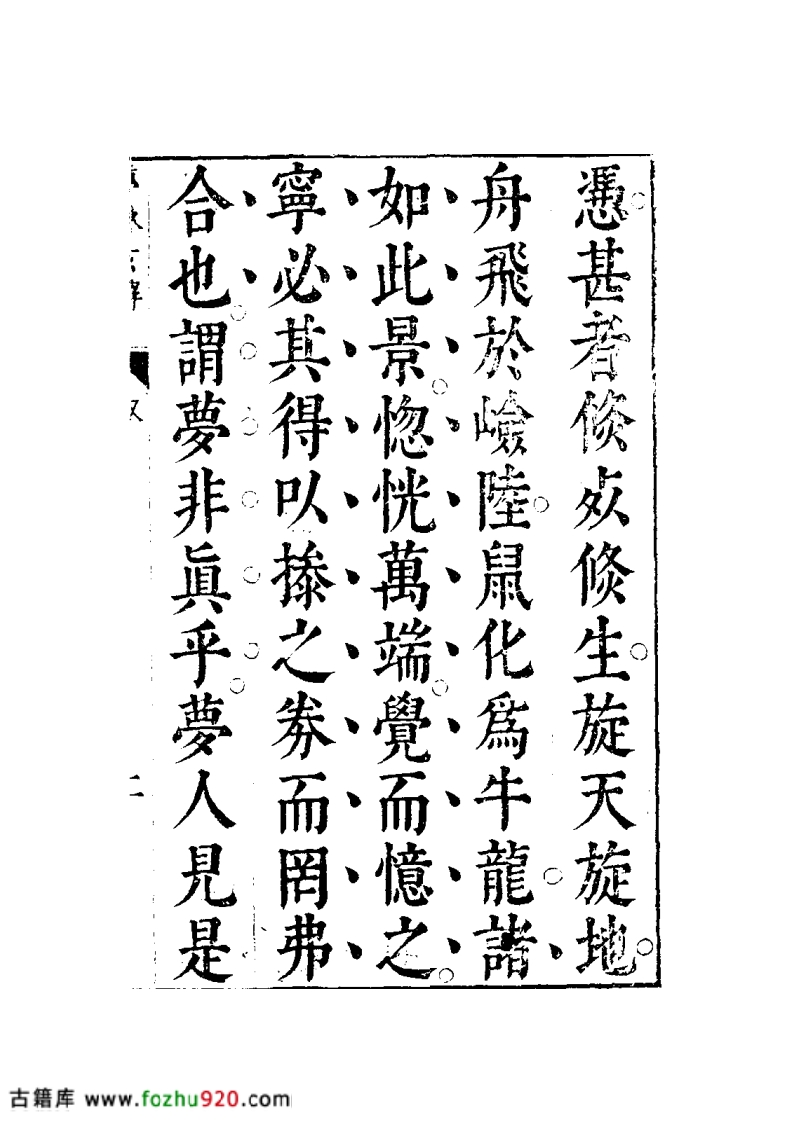 憑甚者倐死倐生旋天旋地
舟飛於嶮陸鼠化爲牛龍諸
如此景惚恍萬端覺而憶之
寧必其得以搽之劵而罔弗
合也謂夢非眞乎夢人見是
二
古籍库 www.fozhu920.com